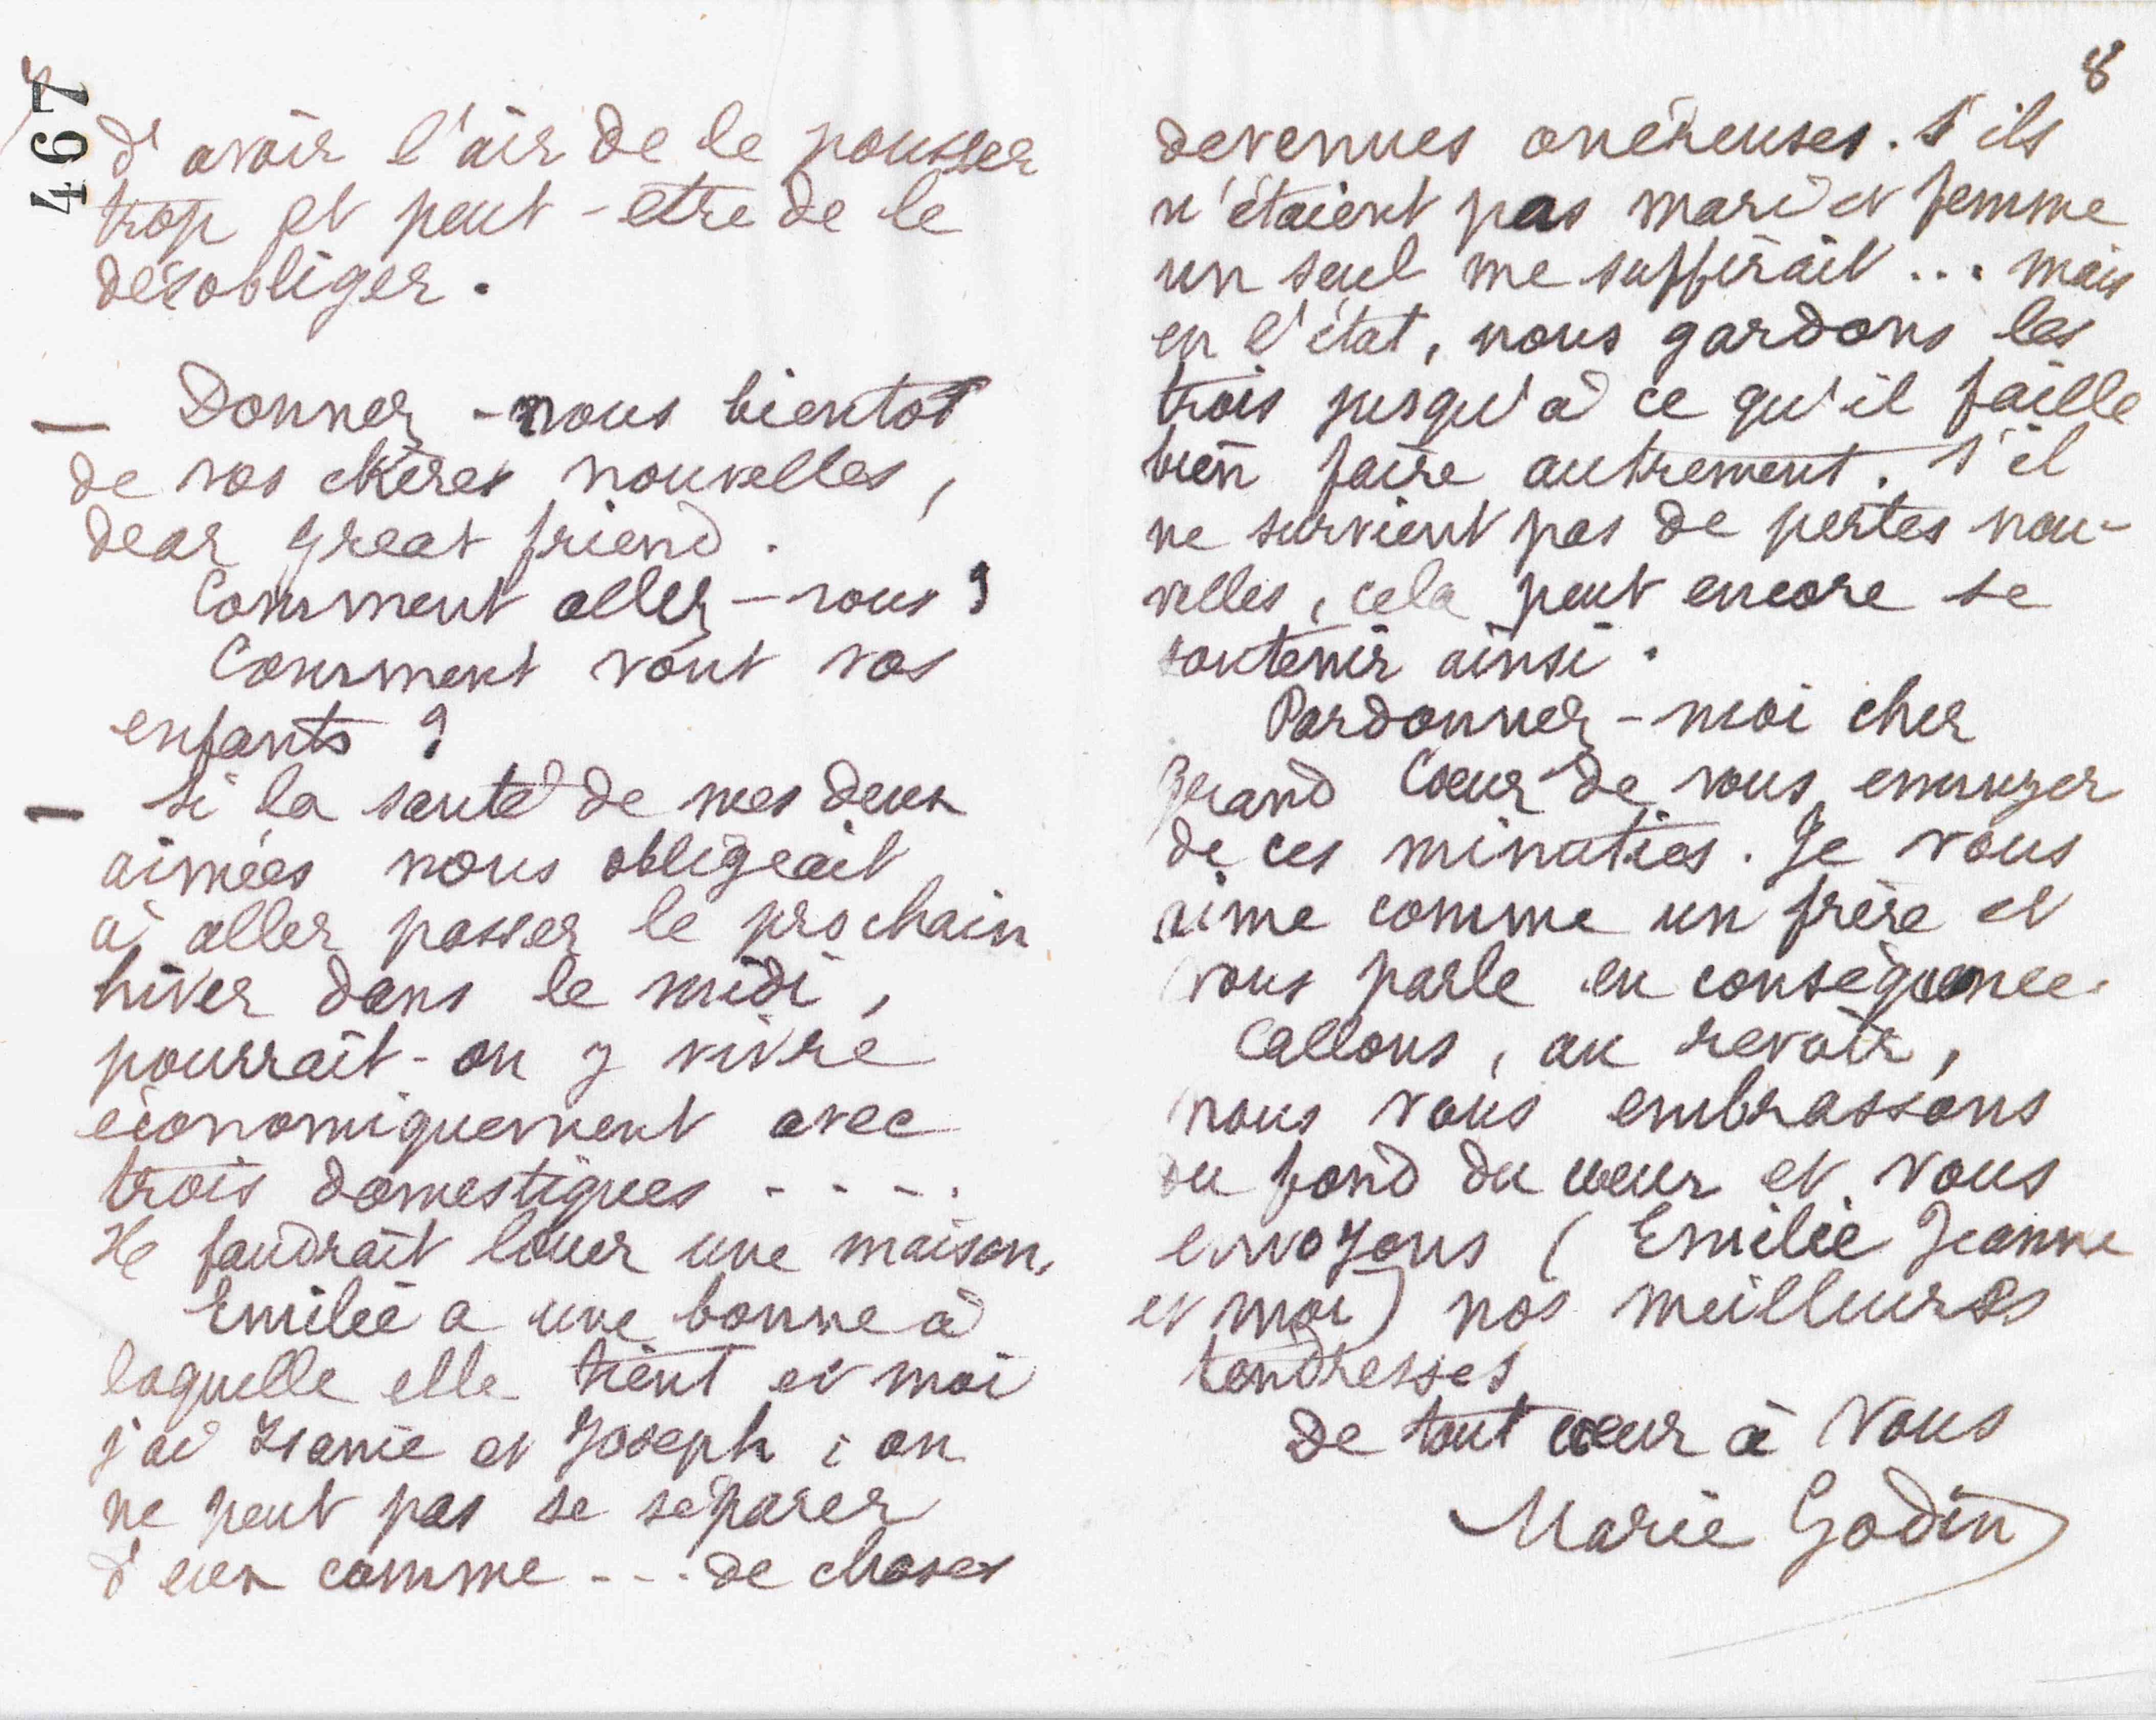 467
d'avoir l'air de le pousser
trop et peut-etre de le
désobliger.
— Donnez-nous bientot
de vos chères nouvelles,
dear great friend.
Comment allez-vous ?
Comment vont vos
enfants ?
— Si la santé de mes deux
aimées nous obligeait
à aller passer le prochain
hiver dans le midi,
pourrait-on y vivre
économiquement avec
trois domestiques - - - .
Il faudrait louer une maison.
Emilie a une bonne à
laquelle elle tient et moi
j'ai et Joseph ; on
ne peut pas se séparer
d'eux comme - - - de choses
8
devenues onéreuses. S'ils
n'étaient pas mari et femme
un seul me suffirait ... mais
en l'état, nous gardons les
trois jusqu'à ce qu'il faille
bien faire autrement. S'il
ne survient pas de pertes nou-
velles, cela peut encore se
soutenir ainsi.
Pardonnez-moi cher
grand Coeur de vous ennuyer
de ces minuties. Je vous
aime comme un frère et
vous parle en conséquence.
allons, au revoir,
nous vous embrassons
du fond du coeur et vous
envoyons ( Emilie Jeanne
et moi) nos meilleures
tendresses
De tout coeur à Vous
Marie Godin